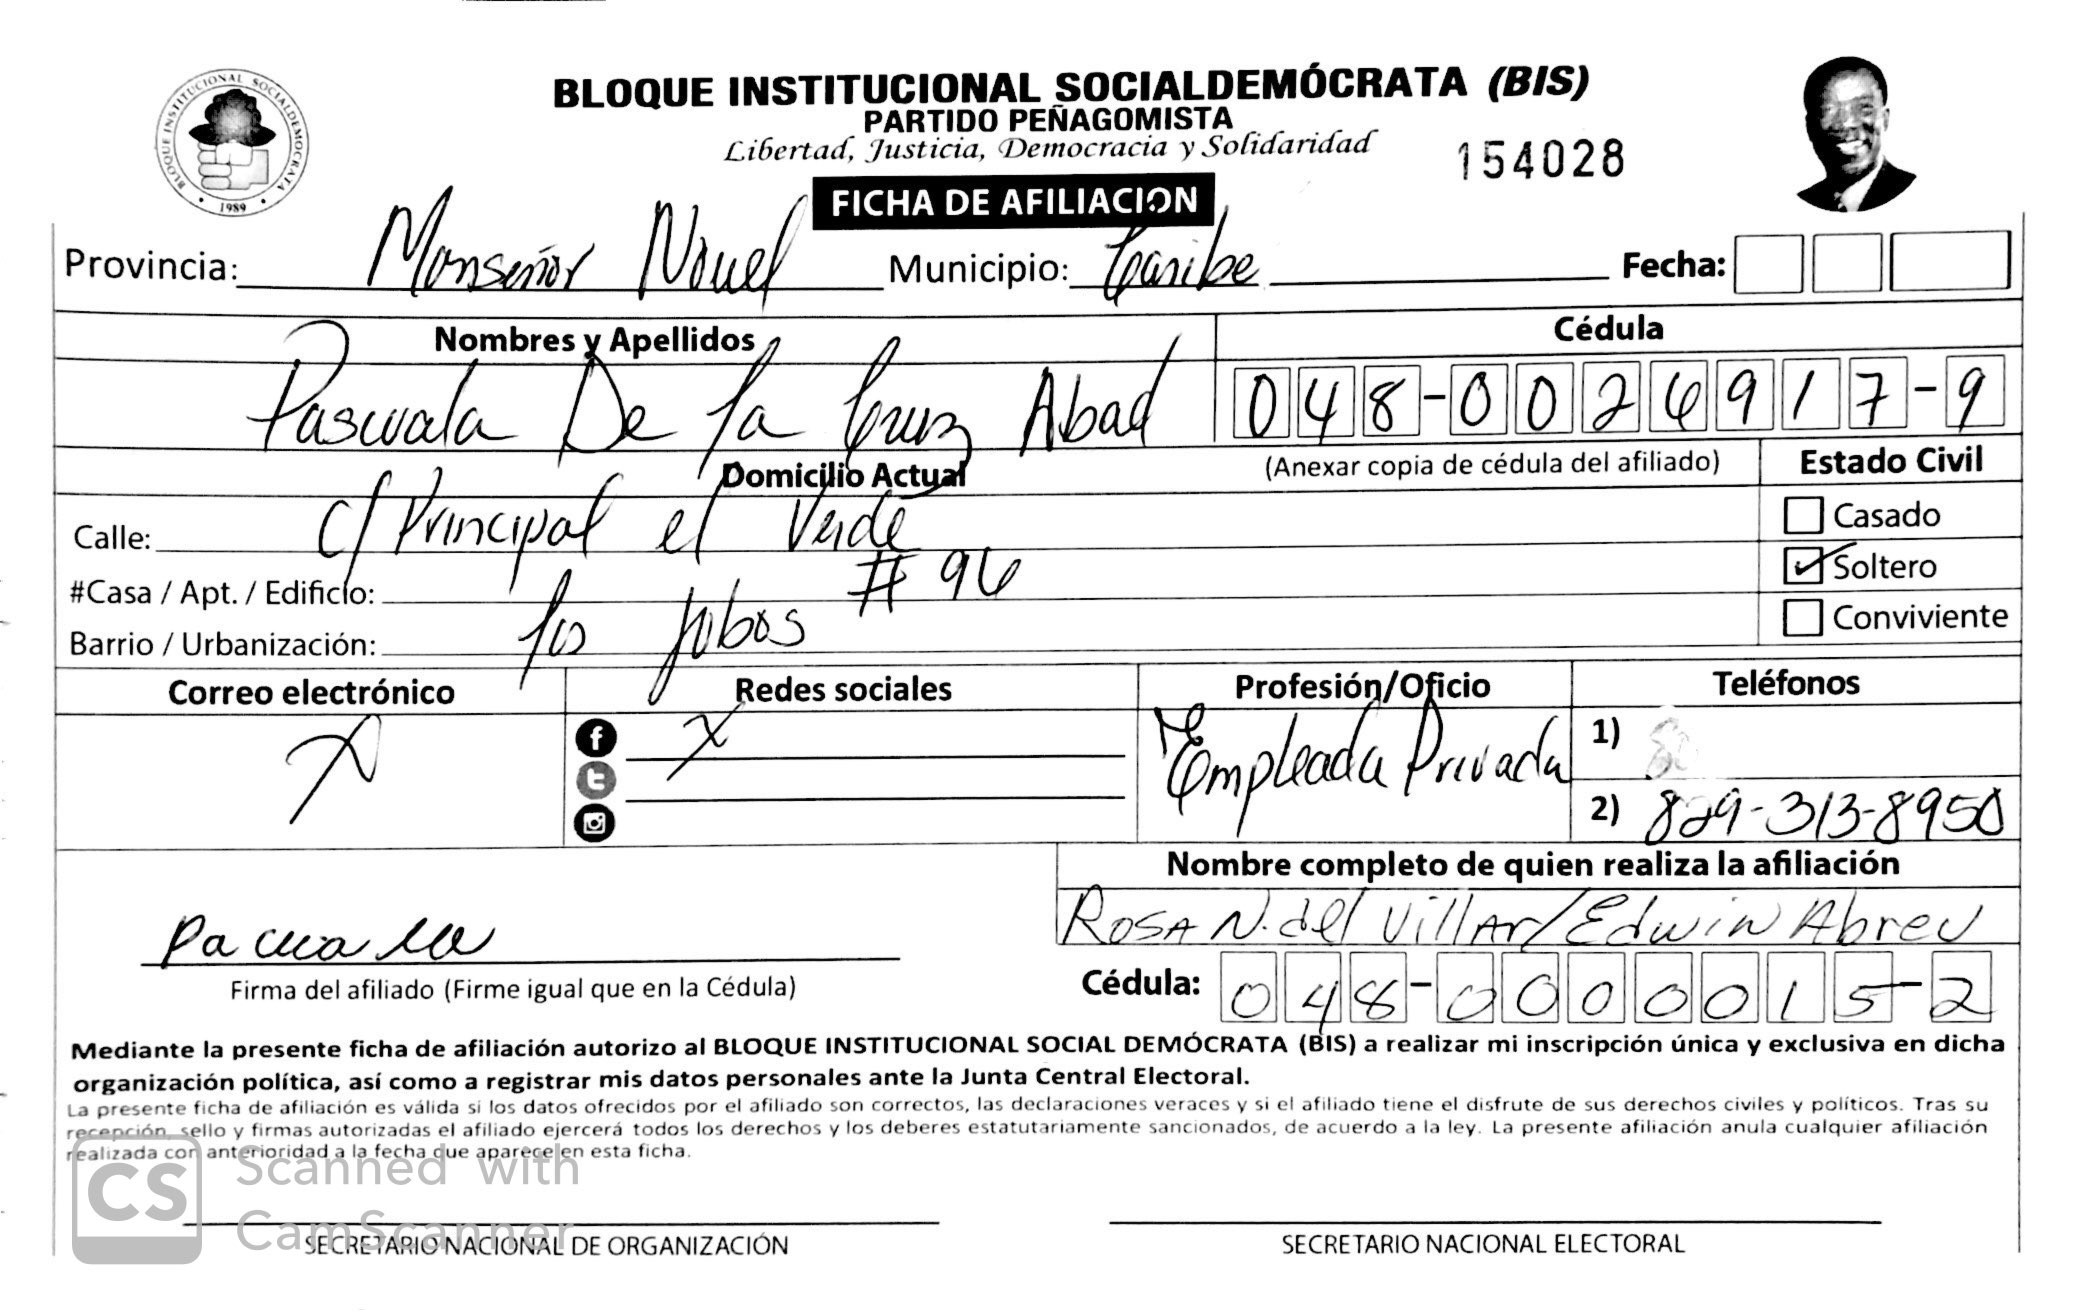 BLOQUE INSTITUCIONAL SOCIALDEMOCRATA
1989
BLOQUE INSTITUCIONAL SOCIALDEMÓCRATA (BIS)
PARTIDO PEÑAGOMISTA
Libertad, Justicia, Democracia y Solidaridad
154028
FICHA DE AFILIACIÓN
Provincia: Monseñor Nouel Municipio: Caribe Fecha:
Nombres y Apellidos Cédula
Pascuala De la Cruz Abad 048-0026917-9
Domicilio Actual (Anexar copia de cédula del afiliado) Estado Civil
Calle: c/ Principal el Verde
Casado
#Casa / Apt. / Edificio: # 96
Soltero
Barrio / Urbanización: los Jobos
Conviviente
Correo electrónico Redes sociales Profesión/Oficio Teléfonos
X X Empleada Privada 1)
2) 829-313-8950
Nombre completo de quien realiza la afiliación
Rosa N. del Villar/Edwin Abreu
Firma del afiliado (Firme igual que en la Cédula)
Cédula: 048-0000015-2
Mediante la presente ficha de afiliación autorizo al BLOQUE INSTITUCIONAL SOCIAL DEMÓCRATA (BIS) a realizar mi inscripción única y exclusiva en dicha
organización política, así como a registrar mis datos personales ante la Junta Central Electoral.
La presente ficha de afiliación es válida si los datos ofrecidos por el afiliado son correctos, las declaraciones veraces y si el afiliado tiene el disfrute de sus derechos civiles y políticos. Tras su
recepción, sello y firmas autorizadas el afiliado ejercerá todos los derechos y los deberes estatutariamente sancionados, de acuerdo a la ley. La presente afiliación anula cualquier afiliación
realizada con anterioridad a la fecha que aparece en esta ficha.
CS Scanned with
CamScanner
SECRETARIO NACIONAL DE ORGANIZACIÓN SECRETARIO NACIONAL ELECTORAL